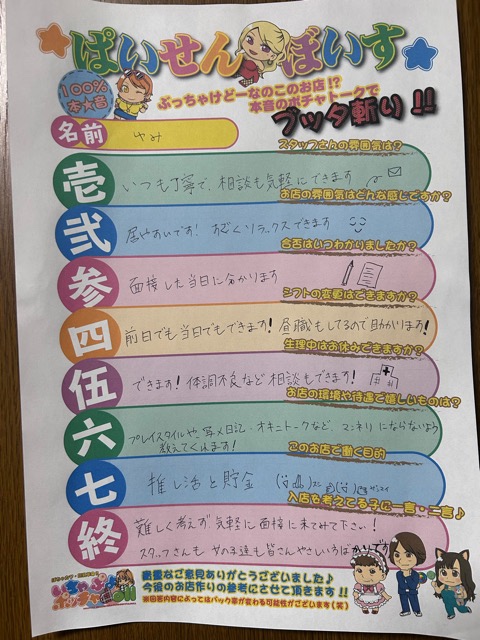 ぱいせんぼいす
100%
本★音
ぶっちゃけどーなのこのお店!?
本音のポチャトークで
ブッタ斬り!!
名前 ゆみ
スタッフさんの雰囲気は?
壱 いつも丁寧で、相談も気軽にできます
お店の雰囲気はどんな感じですか?
弐 居やすいです! すごくリラックスできます
合否はいつわかりましたか?
参 面接した当日に分かります
シフトの変更はできますか?
四 前日でも当日でもできます! 昼職もしてるので助かります!
生理中はお休みできますか?
伍 できます! 体調不良など相談もできます!
お店の環境や待遇で嬉しいものは?
六 プレイスタイルや、写メ日記・オキニトークなど、マンネリにならないよう
教えてくれます!
このお店で働く目的
七 推し活と貯金
入店を考えてる子に一言・二言♪
終 難しく考えず気軽に面接に来てみて下さい!
スタッフさんも 女の子達も皆さんやさしい方ばかりです!
貴重なご意見ありがとうございました♪
今後のお店作りの参考にさせて頂きます!!
※回答内容によってはバック率が変わる可能性がございます(笑)